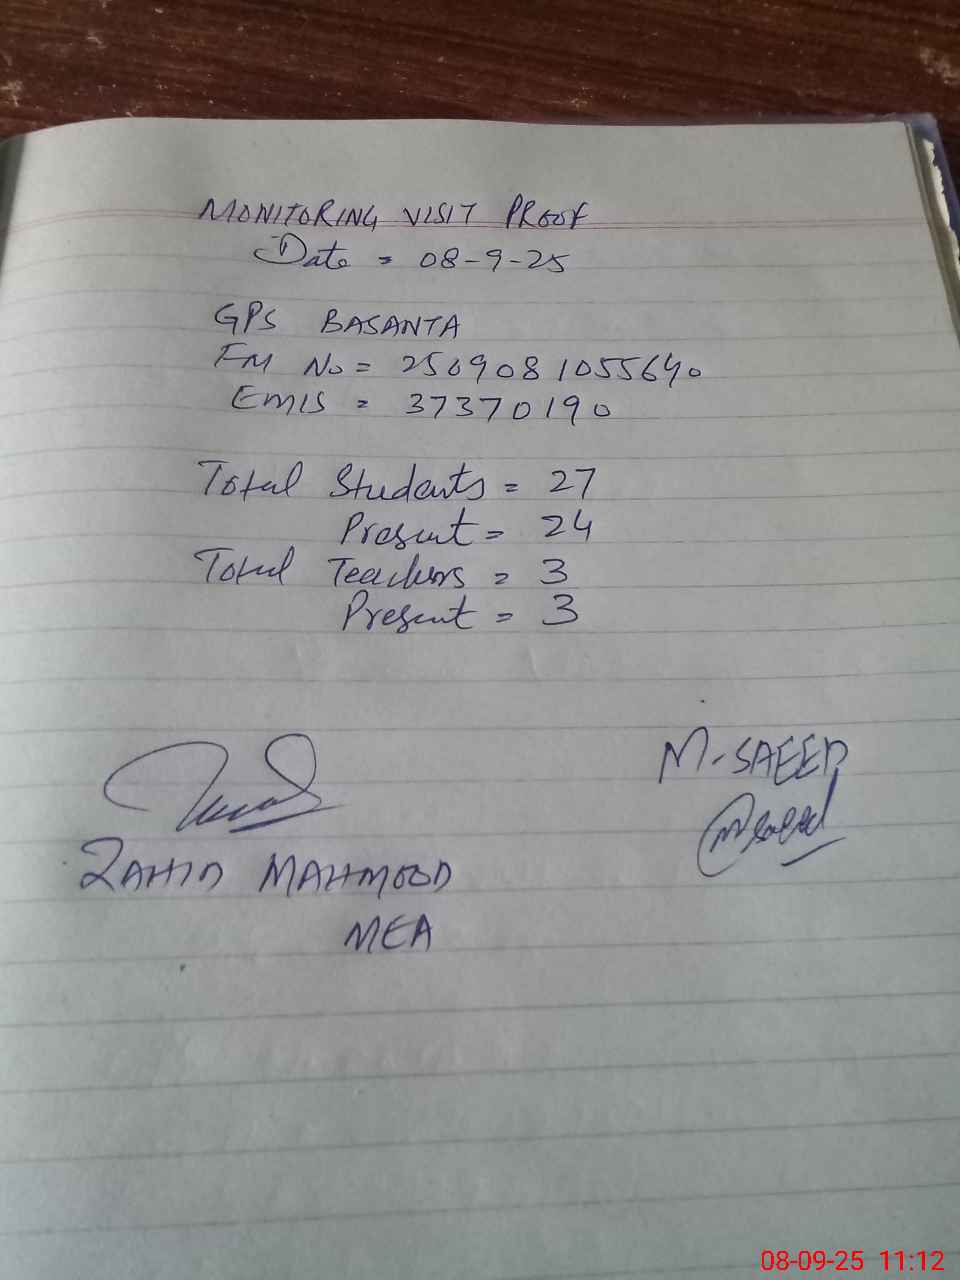 MONITORING VISIT PROOF
Date = 08-9-25
GPS BASANTA
FM No = 2509081055640
EMIS = 37370190
Total Students = 27
Present = 24
Total Teachers = 3
Present = 3
M-SAEED
MSaeed
ZAHID MAHMOOD
MEA
08-09-25 11:12